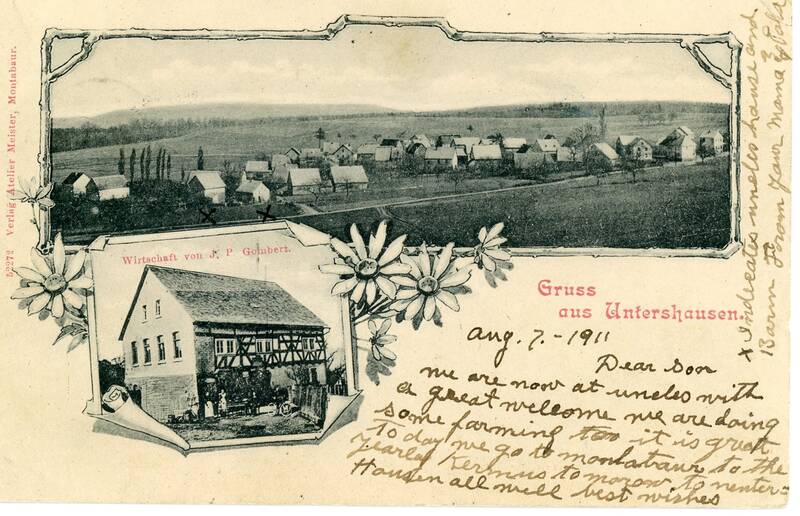 52272 Verlag Atelier Meister, Montabaur.
Wirtschaft von J. P Gombert.
Gruss
aus Untershausen.
Aug. 7. - 1911
Dear Son
we are now at uncles with
a great welcome we are doing
some farming too it is great
To day we go to montabaur to the
yearley Kermus tomorow to nenter=
Hausen all well best wishes
x Indicates uncles hause and
Barn From your mama & Papa